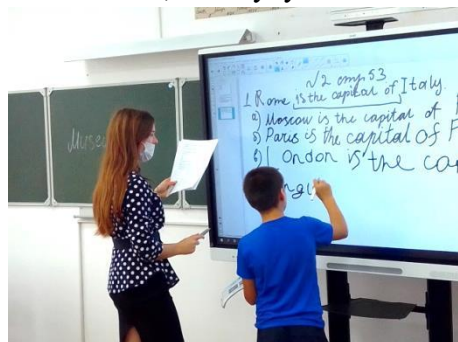 №2 стр 53
1 Rome is the capital of Italy.
а) Moscow is the capital of
б) Paris is the capital of F
в) London is the ca